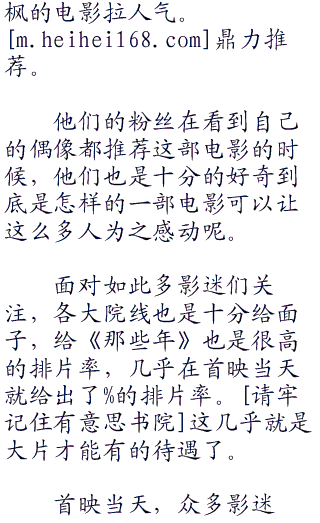 枫的电影拉人气。
[m.heihei168.com]鼎力推
荐。
他们的粉丝在看到自己
的偶像都推荐这部电影的时
候，他们也是十分的好奇到
底是怎样的一部电影可以让
这么多人为之感动呢。
面对如此多影迷们关
注，各大院线也是十分给面
子，给《那些年》也是很高
的排片率，几乎在首映当天
就给出了%的排片率。[请牢
记住有意思书院]这几乎就是
大片才能有的待遇了。
首映当天，众多影迷